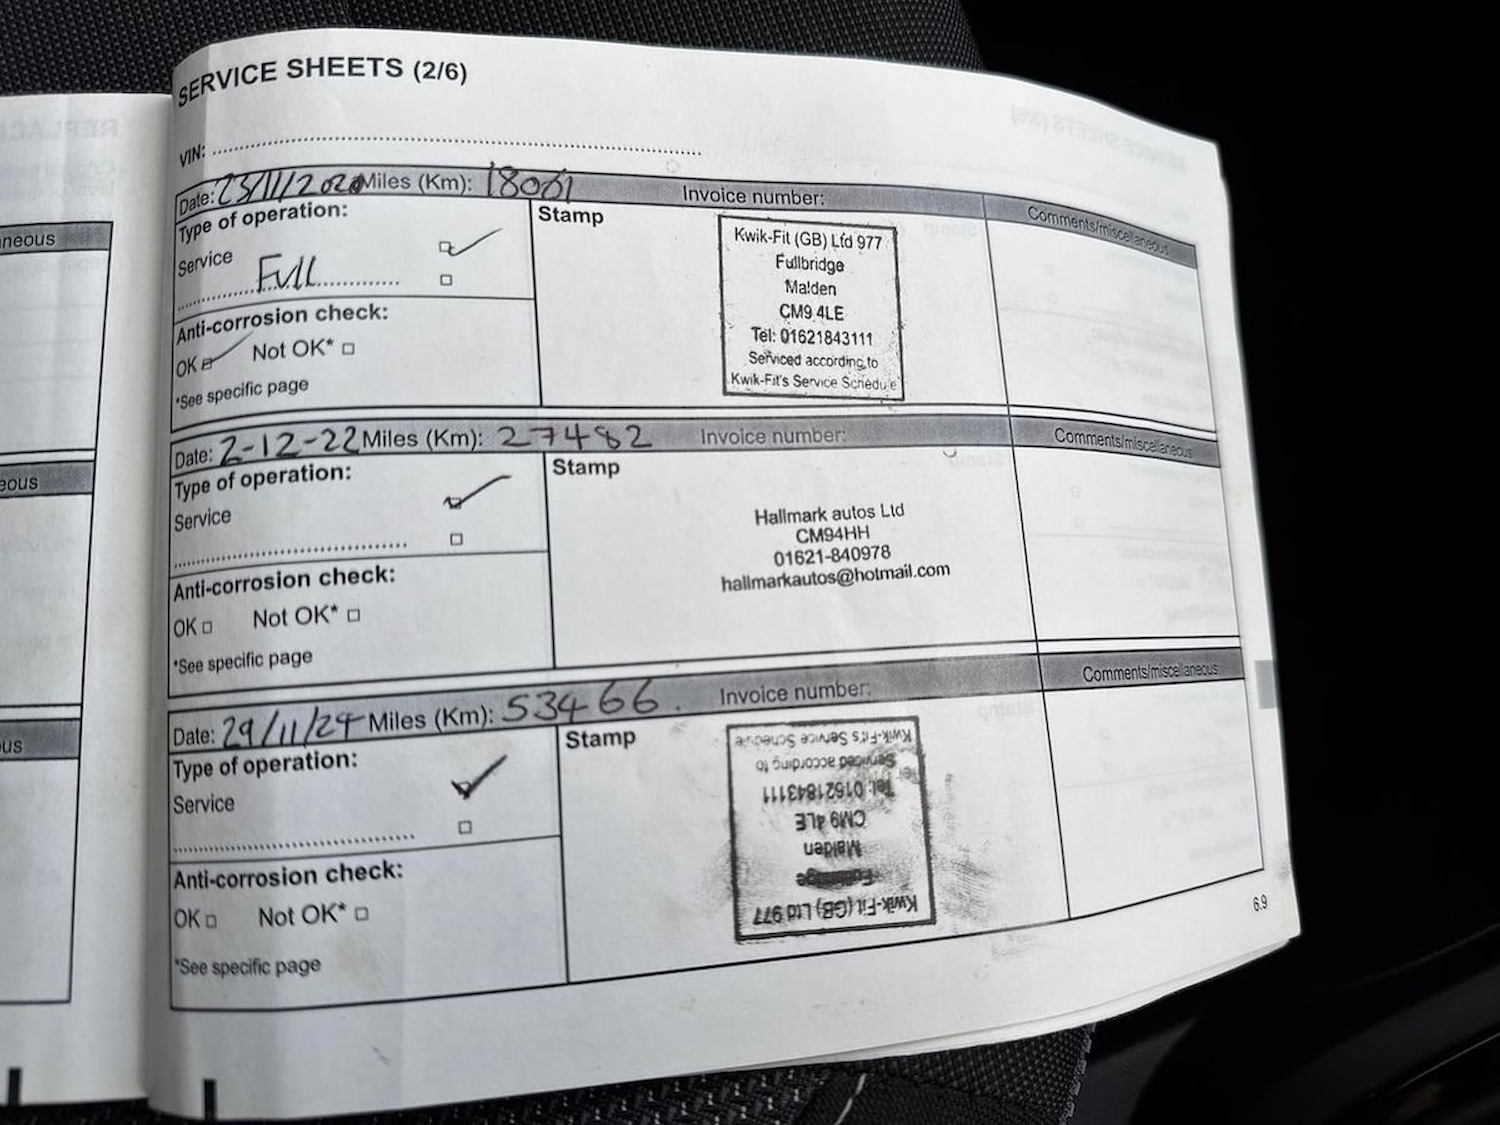 SERVICE SHEETS (2/6)
VIN:
Date: 23/11/2020 Miles (Km): 18061 Invoice number: Comments/miscellaneous
Type of operation:
Service
Full
Anti-corrosion check:
OK Not OK*
*See specific page
Stamp
Kwik-Fit (GB) Ltd 977
Fullbridge
Malden
CM9 4LE
Tel: 01621843111
Serviced according to
Kwik-Fit's Service Schedule
Date: 2-12-22 Miles (Km): 27482 Invoice number: Comments/miscellaneous
Type of operation:
Service
Anti-corrosion check:
OK Not OK*
*See specific page
Stamp
Hallmark autos Ltd
CM94HH
01621-840978
hallmarkautos@hotmail.com
Date: 29/11/24 Miles (Km): 53466. Invoice number: Comments/miscellaneous
Type of operation:
Service
Anti-corrosion check:
OK Not OK*
*See specific page
Stamp
Kwik-Fit (GB) Ltd 977
Malden
CM9 4LE
Tel: 01621843111
Serviced according to
Kwik-Fit's Service Schedule
6.9
neous
eous
us